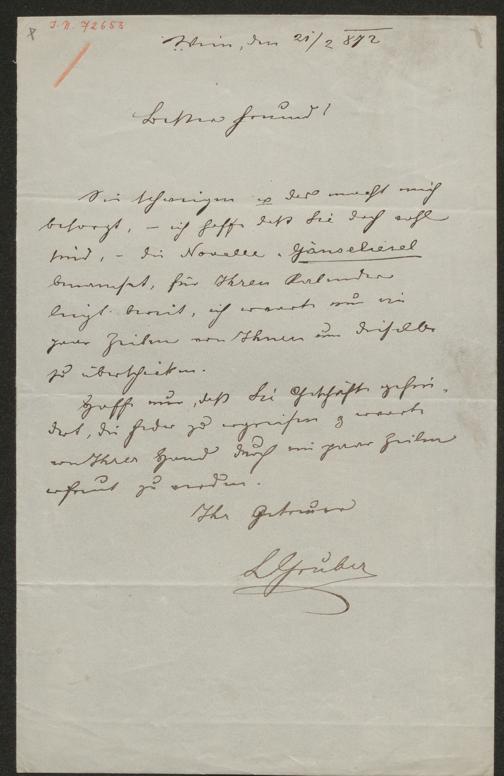 I.N. 72653
Wien, den 21/2 872
Bester Freund!
Sie schweigen u das macht mich
besorgt, – ich hoffe daß Sie doch wohl
sind, – die Novelle „Gänseliesel
benamset, für Ihren Kalender
liegt bereit, ich warte nur ein
paar Zeilen von Ihnen um dieselbe
zu überschicken.
Hoffe nur, daß Sie Geschäfte gehin-
dert, die Feder zu ergreifen & warte
von Ihrer Hand durch ein paar Zeilen
erfreut zu werden.
Ihr Getreuer
LGruber